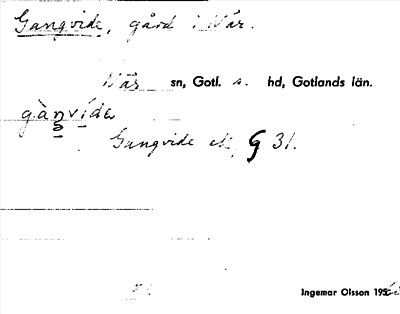 Gangvide, gård i När.
När sn, Gotl. s. hd, Gotlands län.
gànvída
Gangvide ek, G 31.
Ingemar Olsson 195